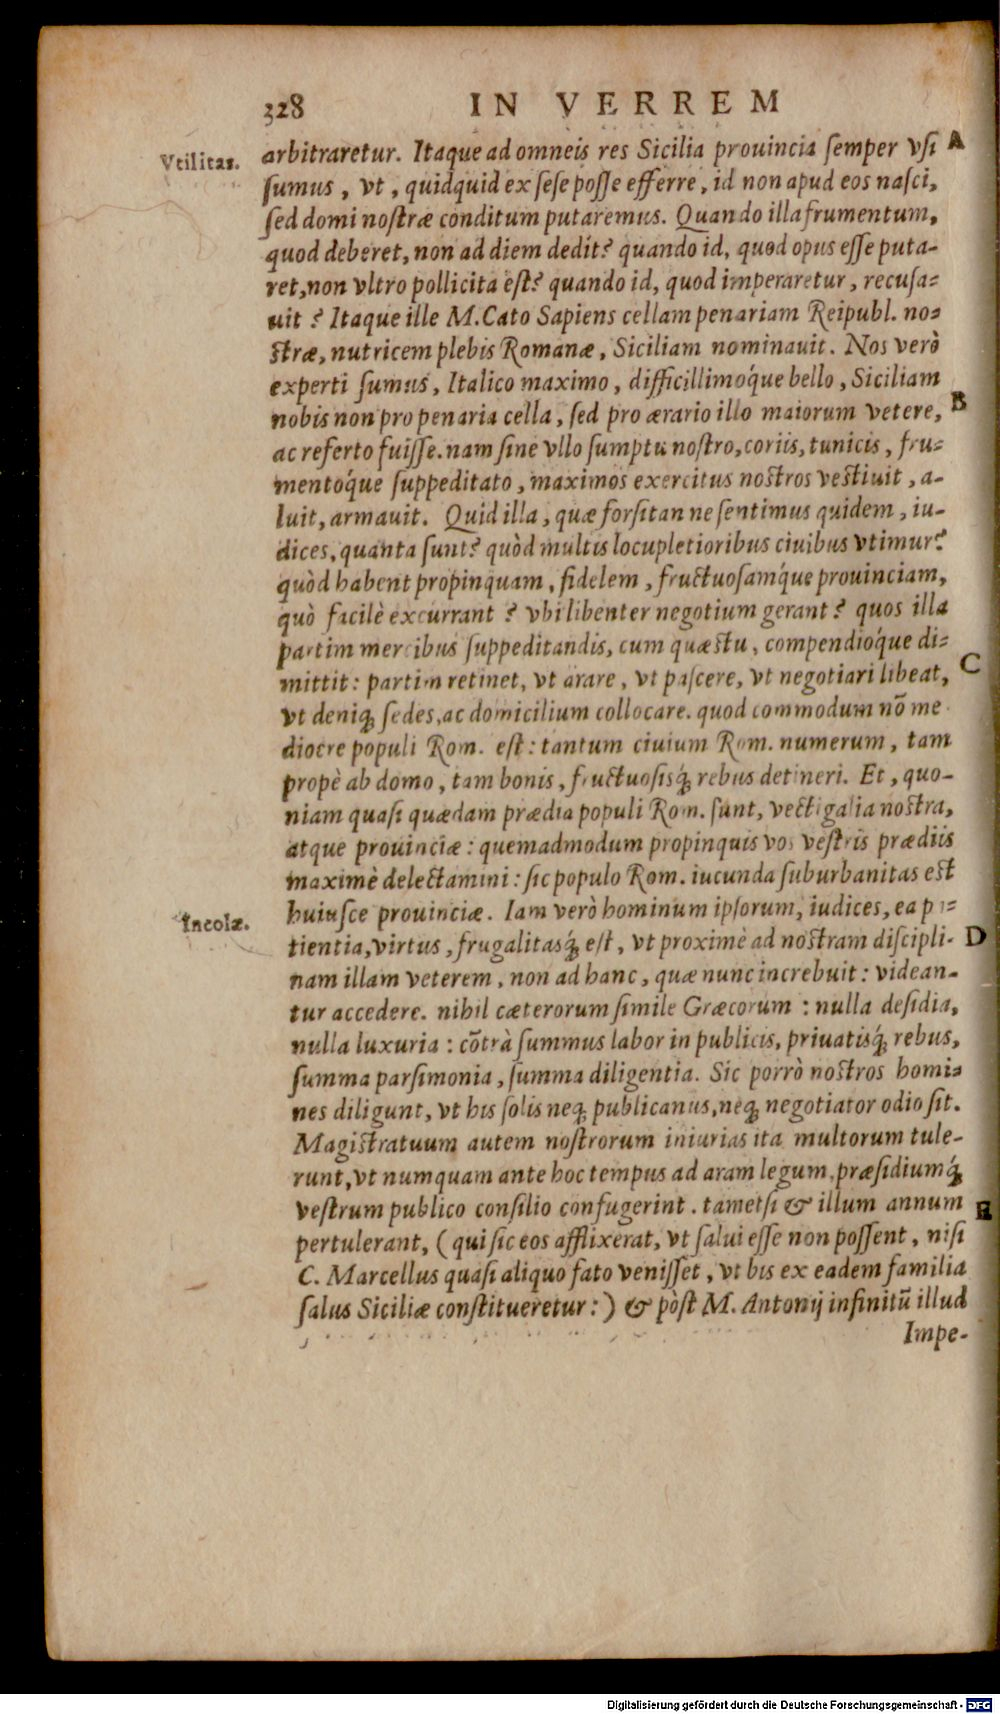 328 IN VERREM
Vtilitas. arbitraretur. Itaque ad omneis res Sicilia prouincia semper vsi A
sumus, vt, quidquid ex sese posse efferre, id non apud eos nasci,
sed domi nostræ conditum putaremus. Quando illa frumentum,
quod deberet, non ad diem dedit? quando id, quod opus esse puta-
ret, non vltro pollicita est? quando id, quod imperaretur, recusa-
uit? Itaque ille M. Cato Sapiens cellam penariam Reipubl. no-
stræ, nutricem plebis Romanæ, Siciliam nominauit. Nos verò
experti sumus, Italico maximo, difficillimóque bello, Siciliam
nobis non pro penaria cella, sed pro ærario illo maiorum vetere, B
ac referto fuisse. nam sine vllo sumptu nostro, coriis, tunicis, fru-
mentóque suppeditato, maximos exercitus nostros vestiuit, a-
luit, armauit. Quid illa, quæ forsitan ne sentimus quidem, iu-
dices, quanta sunt? quòd multis locupletioribus ciuibus vtimur?
quòd habent propinquam, fidelem, fructuosamq́ue prouinciam,
quò facilè excurrant? vbi libenter negotium gerant? quos illa
partim mercibus suppeditandis, cum quæstu, compendióque di-
mittit: partim retinet, vt arare, vt pascere, vt negotiari libeat, C
vt deniq; sedes, ac domicilium collocare. quod commodum nō me
diocre populi Rom. est: tantum ciuium Rom. numerum, tam
propè ab domo, tam bonis, fructuosisq́; rebus detineri. Et, quo-
niam quasi quædam prædia populi Rom. sunt, vectigalia nostra,
atque prouinciæ: quemadmodum propinquis vos vestris prædiis
maximè delectamini: sic populo Rom. iucunda suburbanitas est
Incolæ. huiusce prouinciæ. Iam verò hominum ipsorum, iudices, ea pa-
tientia, virtus, frugalitasq́; est, vt proximè ad nostram discipli- D
nam illam veterem, non ad hanc, quæ nunc increbuit: videan-
tur accedere. nihil cæterorum simile Græcorum: nulla desidia,
nulla luxuria: cōtrà summus labor in publicis, priuatisq́; rebus,
summa parsimonia, summa diligentia. Sic porrò nostros homi-
nes diligunt, vt his solis neq; publicanus, neq; negotiator odio sit.
Magistratuum autem nostrorum iniurias ita multorum tule-
runt, vt numquam ante hoc tempus ad aram legum, præsidiumq́;
vestrum publico consilio confugerint. tametsi & illum annum E
pertulerant, (qui sic eos afflixerat, vt salui esse non possent, nisi
C. Marcellus quasi aliquo fato venisset, vt bis ex eadem familia
salus Siciliæ constitueretur:) & pòst M. Antonij infinitū illud
Impe-
Digitalisierung gefördert durch die Deutsche Forschungsgemeinschaft - DFG